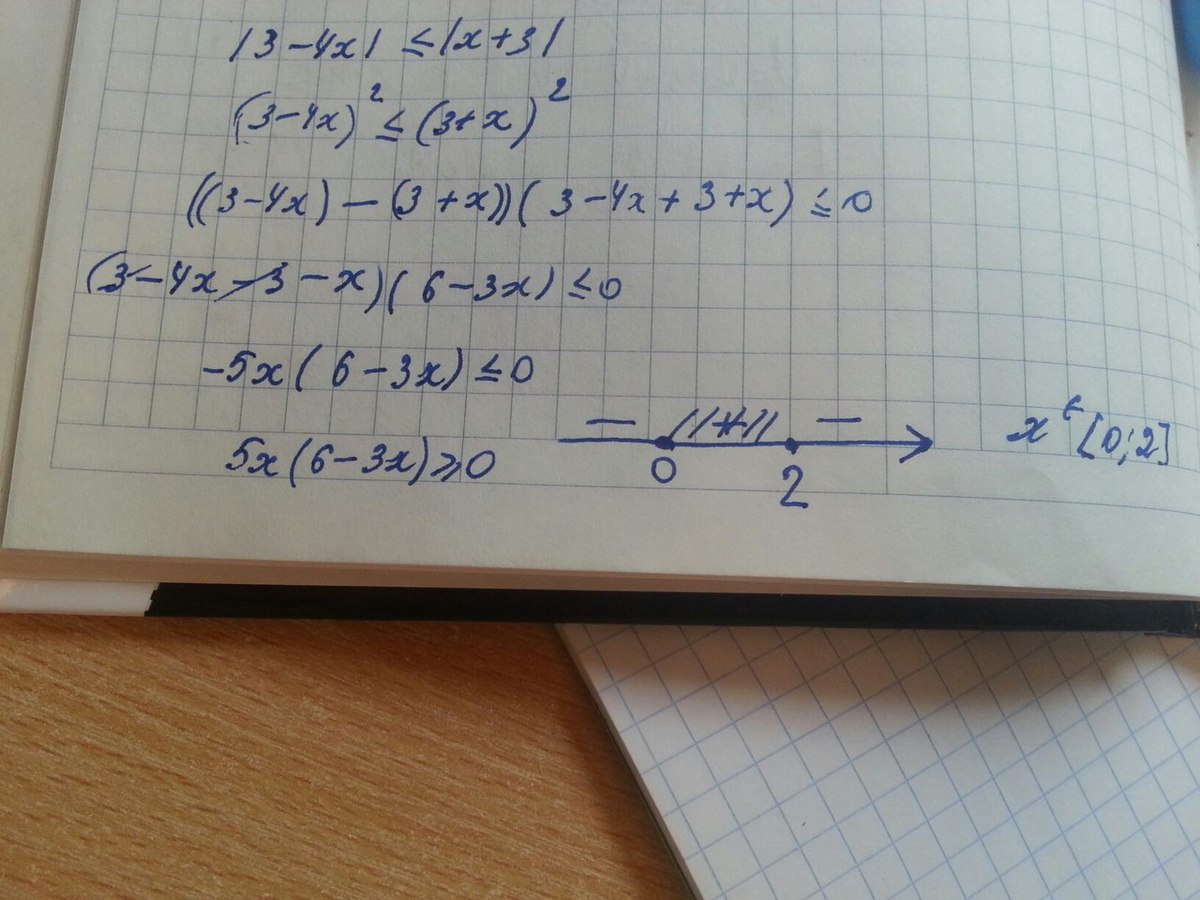 |3-4x| ≤ |x+3|
(3-4x)² ≤ (3+x)²
((3-4x)-(3+x))(3-4x+3+x) ≤ 0
(3-4x-3-x)(6-3x) ≤ 0
-5x(6-3x) ≤ 0
5x(6-3x) ≥ 0 — + — x ∈ [0;2]
0 2